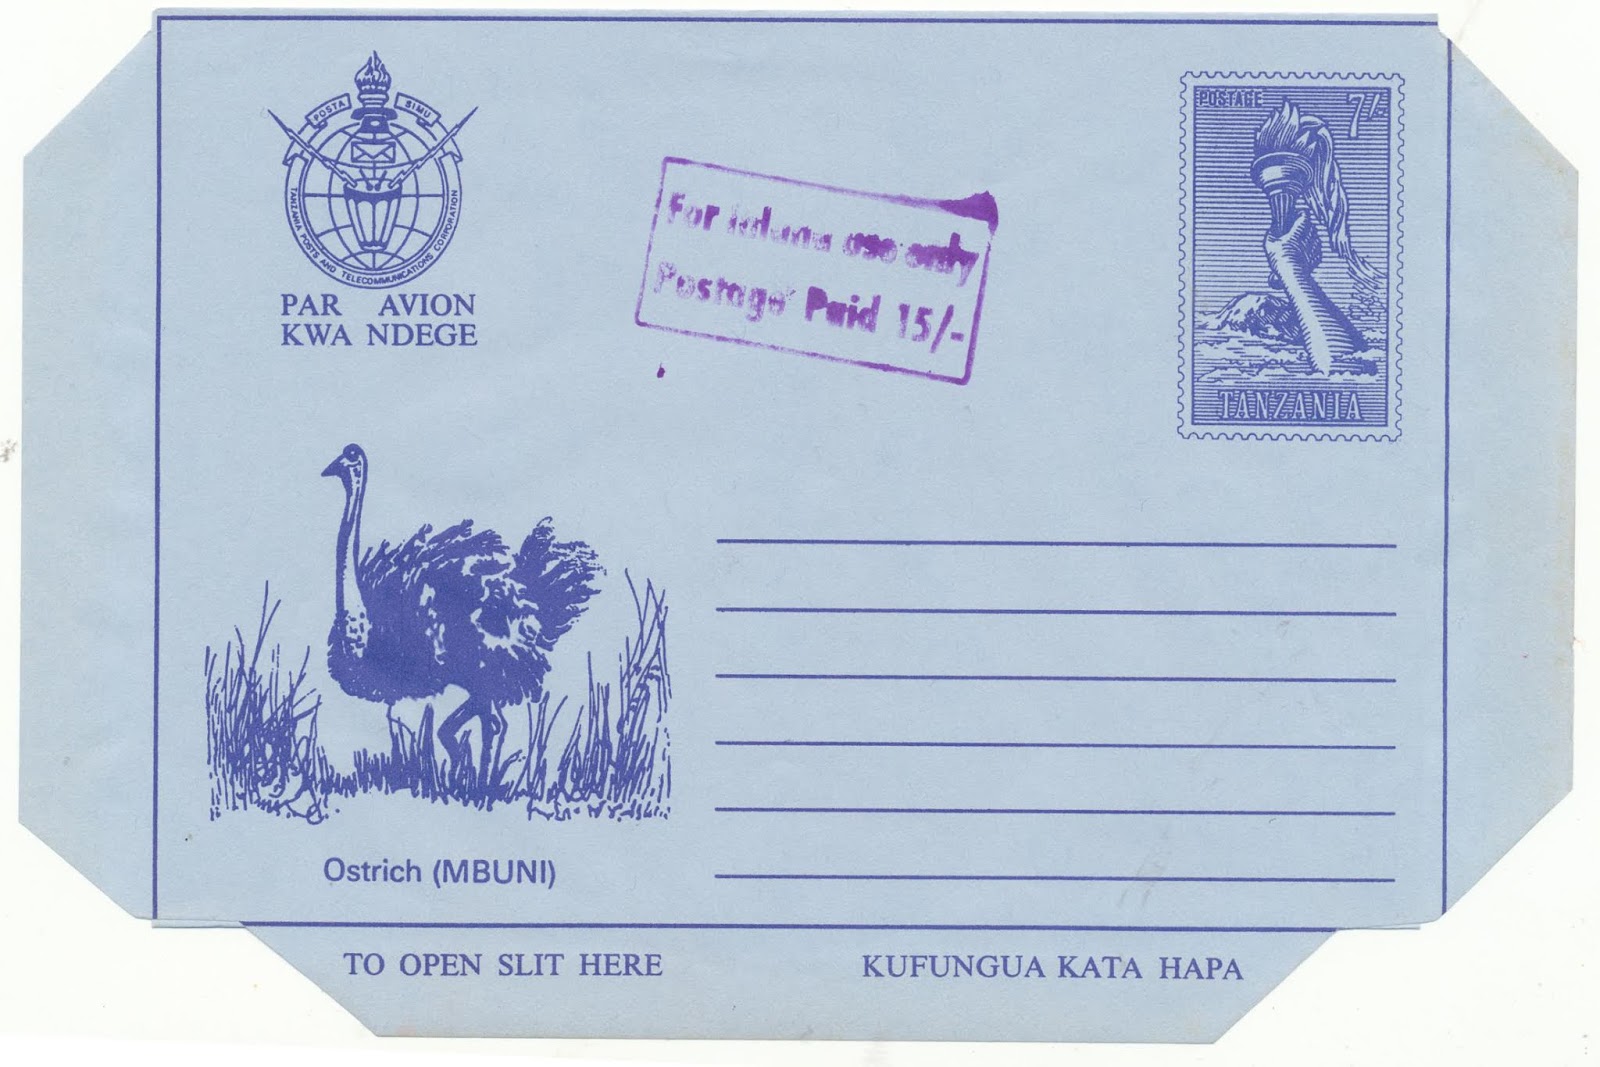 POSTA SIMU
TANZANIA POSTS AND TELECOMMUNICATIONS CORPORATION
PAR AVION
KWA NDEGE
For Inland use only
Postage Paid 15/-
POSTAGE 7/-
TANZANIA
Ostrich (MBUNI)
TO OPEN SLIT HERE KUFUNGUA KATA HAPA